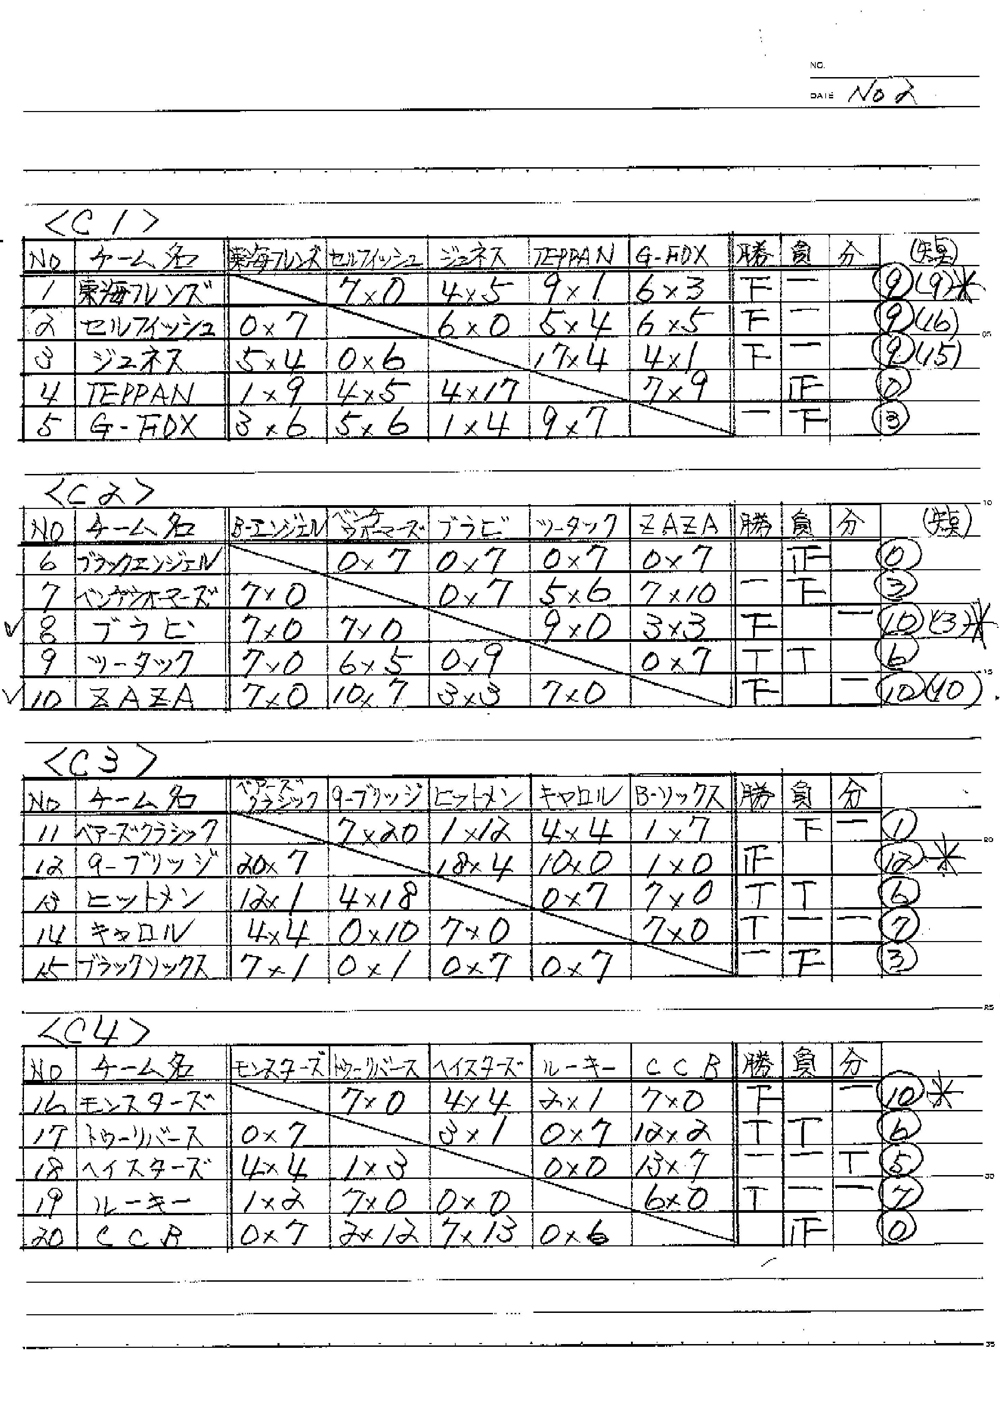 NO.
DATE No2
<C1>
No チーム名 東海フレンズ セルフィッシュ ジュネス TEPPAN G-FDX 勝 負 分 (失点)
1 東海フレンズ 7×0 4×5 9×1 6×3 下 一 ⑨(9)*
2 セルフィッシュ 0×7 6×0 5×4 6×5 下 一 ⑨(16)
3 ジュネス 5×4 0×6 17×4 4×1 下 一 ⑨(15)
4 TEPPAN 1×9 4×5 4×17 7×9 正 ⓪
5 G-FDX 3×6 5×6 1×4 9×7 一 下 ③
<C2>
NO チーム名 B-エンジェル ベンチウォーマーズ ブラビ ツータック ZAZA 勝 負 分 (失点)
6 ブラックエンジェル 0×7 0×7 0×7 0×7 正 ⓪
7 ベンチウォーマーズ 7×0 0×7 5×6 7×10 一 下 ③
✓ 8 ブラビ 7×0 7×0 9×0 3×3 下 一 ⑩(3)*
9 ツータック 7×0 6×5 0×9 0×7 T T ⑥
✓ 10 ZAZA 7×0 10×7 3×3 7×0 下 一 ⑩(10)
<C3>
No チーム名 ベアーズクラシック 9-ブリッジ ヒットメン キャロル B-ソックス 勝 負 分
11 ベアーズクラシック 7×20 1×12 4×4 1×7 下 一 ①
12 9-ブリッジ 20×7 18×4 10×0 1×0 正 ⑫*
13 ヒットメン 12×1 4×18 0×7 7×0 T T ⑥
14 キャロル 4×4 0×10 7×0 7×0 T 一 一 ⑦
15 ブラックソックス 7×1 0×1 0×7 0×7 一 下 ③
<C4>
No チーム名 モンスターズ トゥーリバース ヘイスターズ ルーキー CCB 勝 負 分
16 モンスターズ 7×0 4×4 2×1 7×0 下 一 ⑩*
17 トゥーリバース 0×7 3×1 0×7 12×2 T T ⑥
18 ヘイスターズ 4×4 1×3 0×0 13×7 一 一 T ⑤
19 ルーキー 1×2 7×0 0×0 6×0 T 一 一 ⑦
20 CCB 0×7 2×12 7×13 0×6 正 ⓪